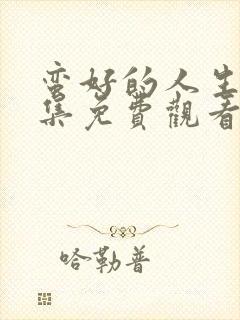 蛮好的人生
集免費觀看
哈勒普